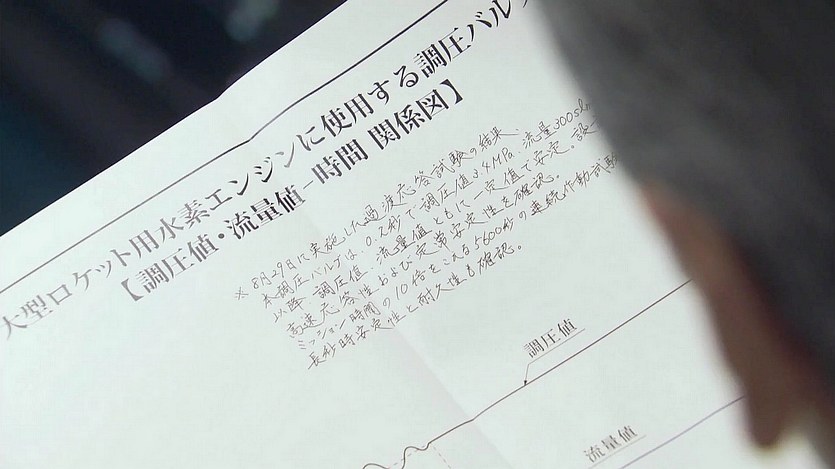 大型ロケット用水素エンジンに使用する調圧バルブ
【調圧値・流量値−時間 関係図】
※8月29日に実施した過渡応答試験の結果、
本調圧バルブは、0.2秒で調圧値3.4MPa、流量300
以降、調圧値、流量値ともに一定値で安定。
高速応答性および定常安定性を確認。
ミッション時間の10倍をこえる5600秒の連続作動試験
長秒時安定性と耐久性も確認。
調圧値
流量値